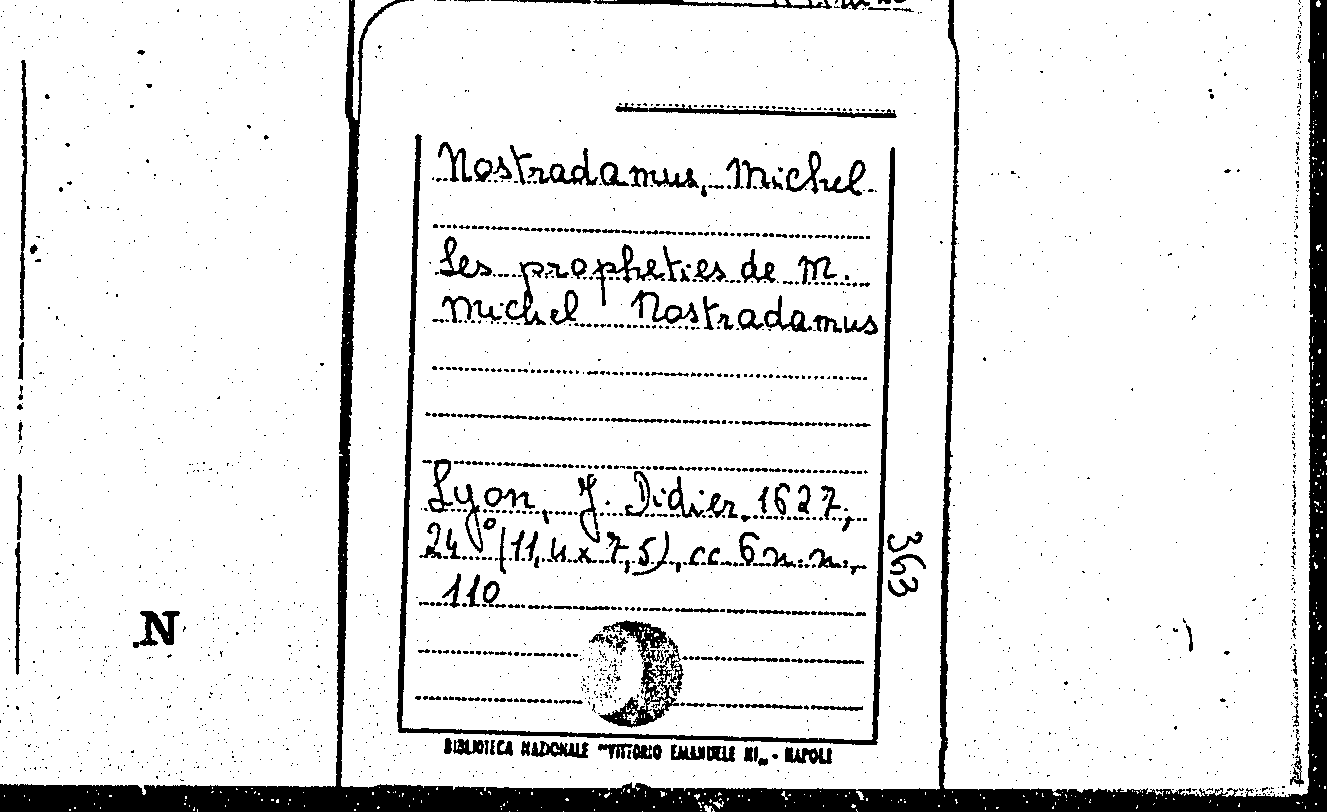 Nostradamus, Michel
Les propheties de M.
Michel Nostradamus
Lyon, J. Didier, 1627,
24° (11,4 x 7,5), cc. 6 n.n.,
110
363
.N
BIBLIOTECA NAZIONALE "VITTORIO EMANUELE III" - NAPOLI